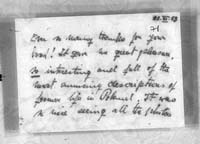 so many thanks for your
book! It gave me great pleasure,
so interesting and full of the
most amusing descriptions of
former life in Poland. It was
nice seeing all the